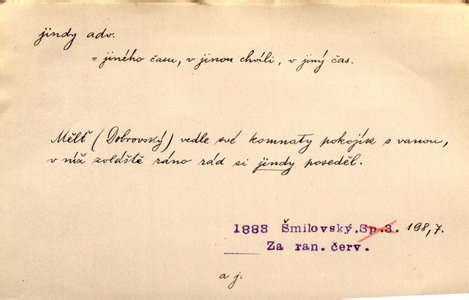 jindy adv.
= jiného času, v jinou chvíli, v jiný čas.
Měltě (Dobrovský) vedle své komnaty pokojík s vanou,
v níž zvláště ráno rád si jindy poseděl.
1883 Šmilovský. Sp. 3. 198,7.
Za ran. červ.
a j.